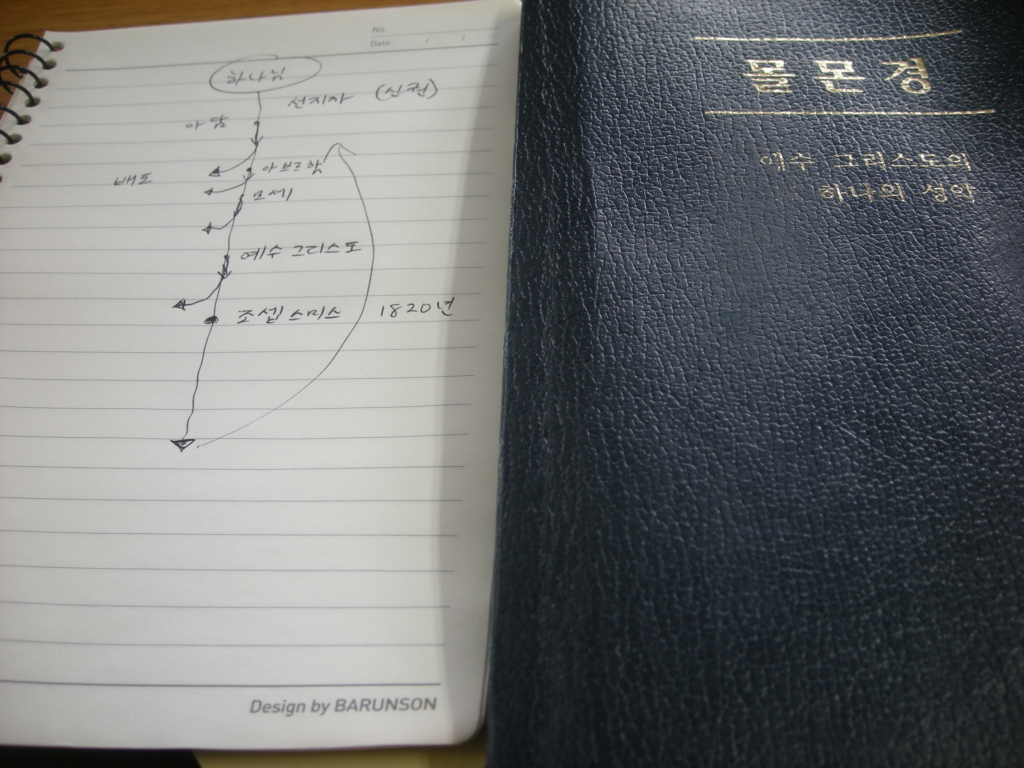 No.
Date. / /
하나님
선지자 (신권)
아담
아브라함
배도
모세
예수 그리스도
조셉스미스 1820년
Design by BARUNSON
몰몬경
예수 그리스도의
하나의 성약